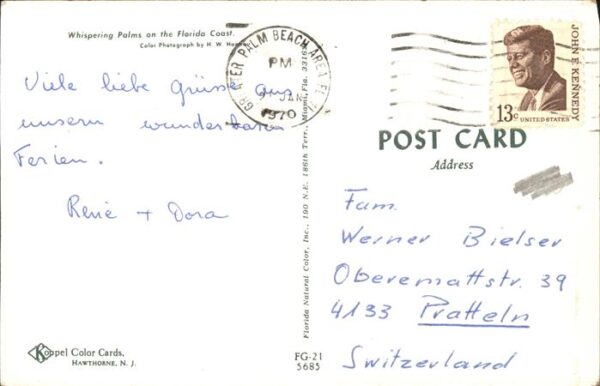 Whispering Palms on the Florida Coast.
Color Photograph by H. W.
Viele liebe Grüsse aus
unsern wunderbaren
Ferien.
René + Dora
Koppel Color Cards,
HAWTHORNE, N. J.
Florida Natural Color, Inc., 190 N.E. 186th Terr., Miami, Fla. 3316
FG-21
5685
GREATER PALM BEACH AREA FL
PM
JAN
1970
JOHN F. KENNEDY
13c
UNITED STATES
POST CARD
Address
Fam.
Werner Bielser
Oberemattstr. 39
4133 Pratteln
Switzerland